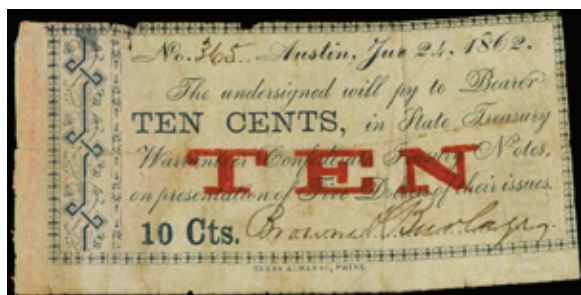 No. 365. Austin, Jun 24, 1862.
The undersigned will py to Bearer
TEN CENTS, in State Treasury
Warrants or Confederate Treasury Notes,
TEN
on presentation of Five Dollars of their issues.
10 Cts.
TEXAS ALMANAC, PRINT.